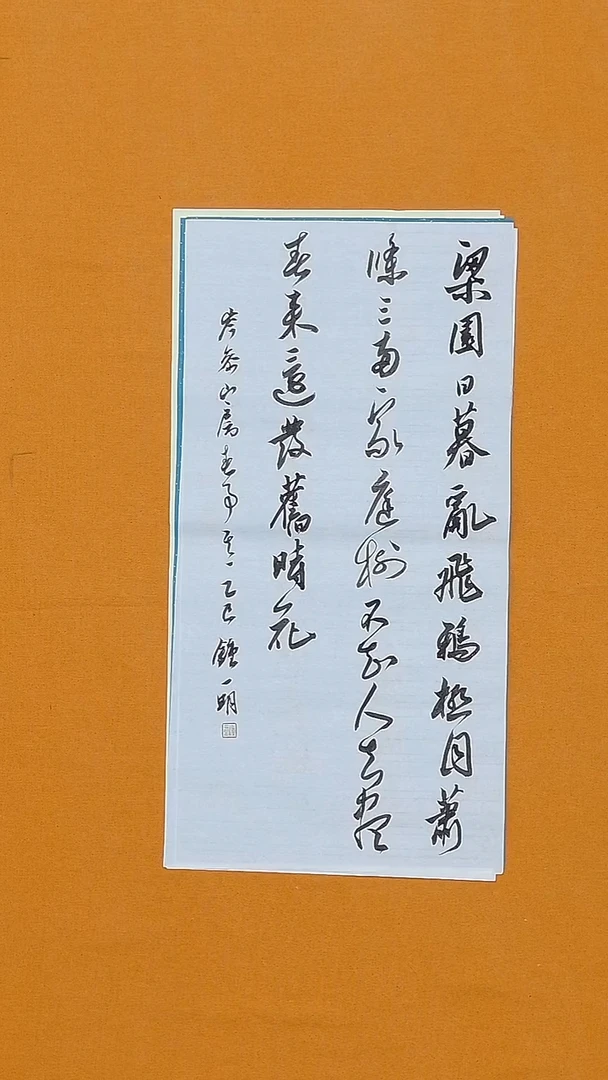 梁園日暮亂飛鴉極目蕭
條三兩家庭樹不知人去盡
春來還發舊時花
岑參山房春事其一乙巳鍾一明